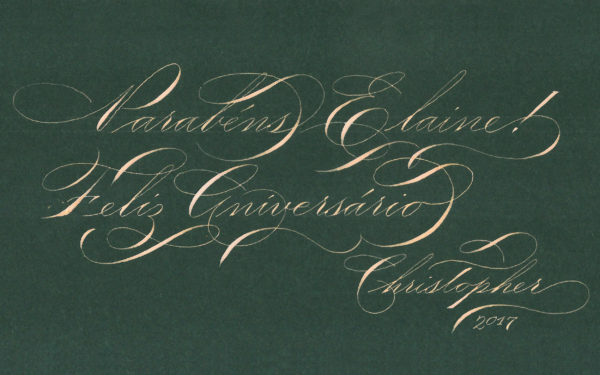 Parabéns Elaine!
Feliz Aniversário
Christopher
2017